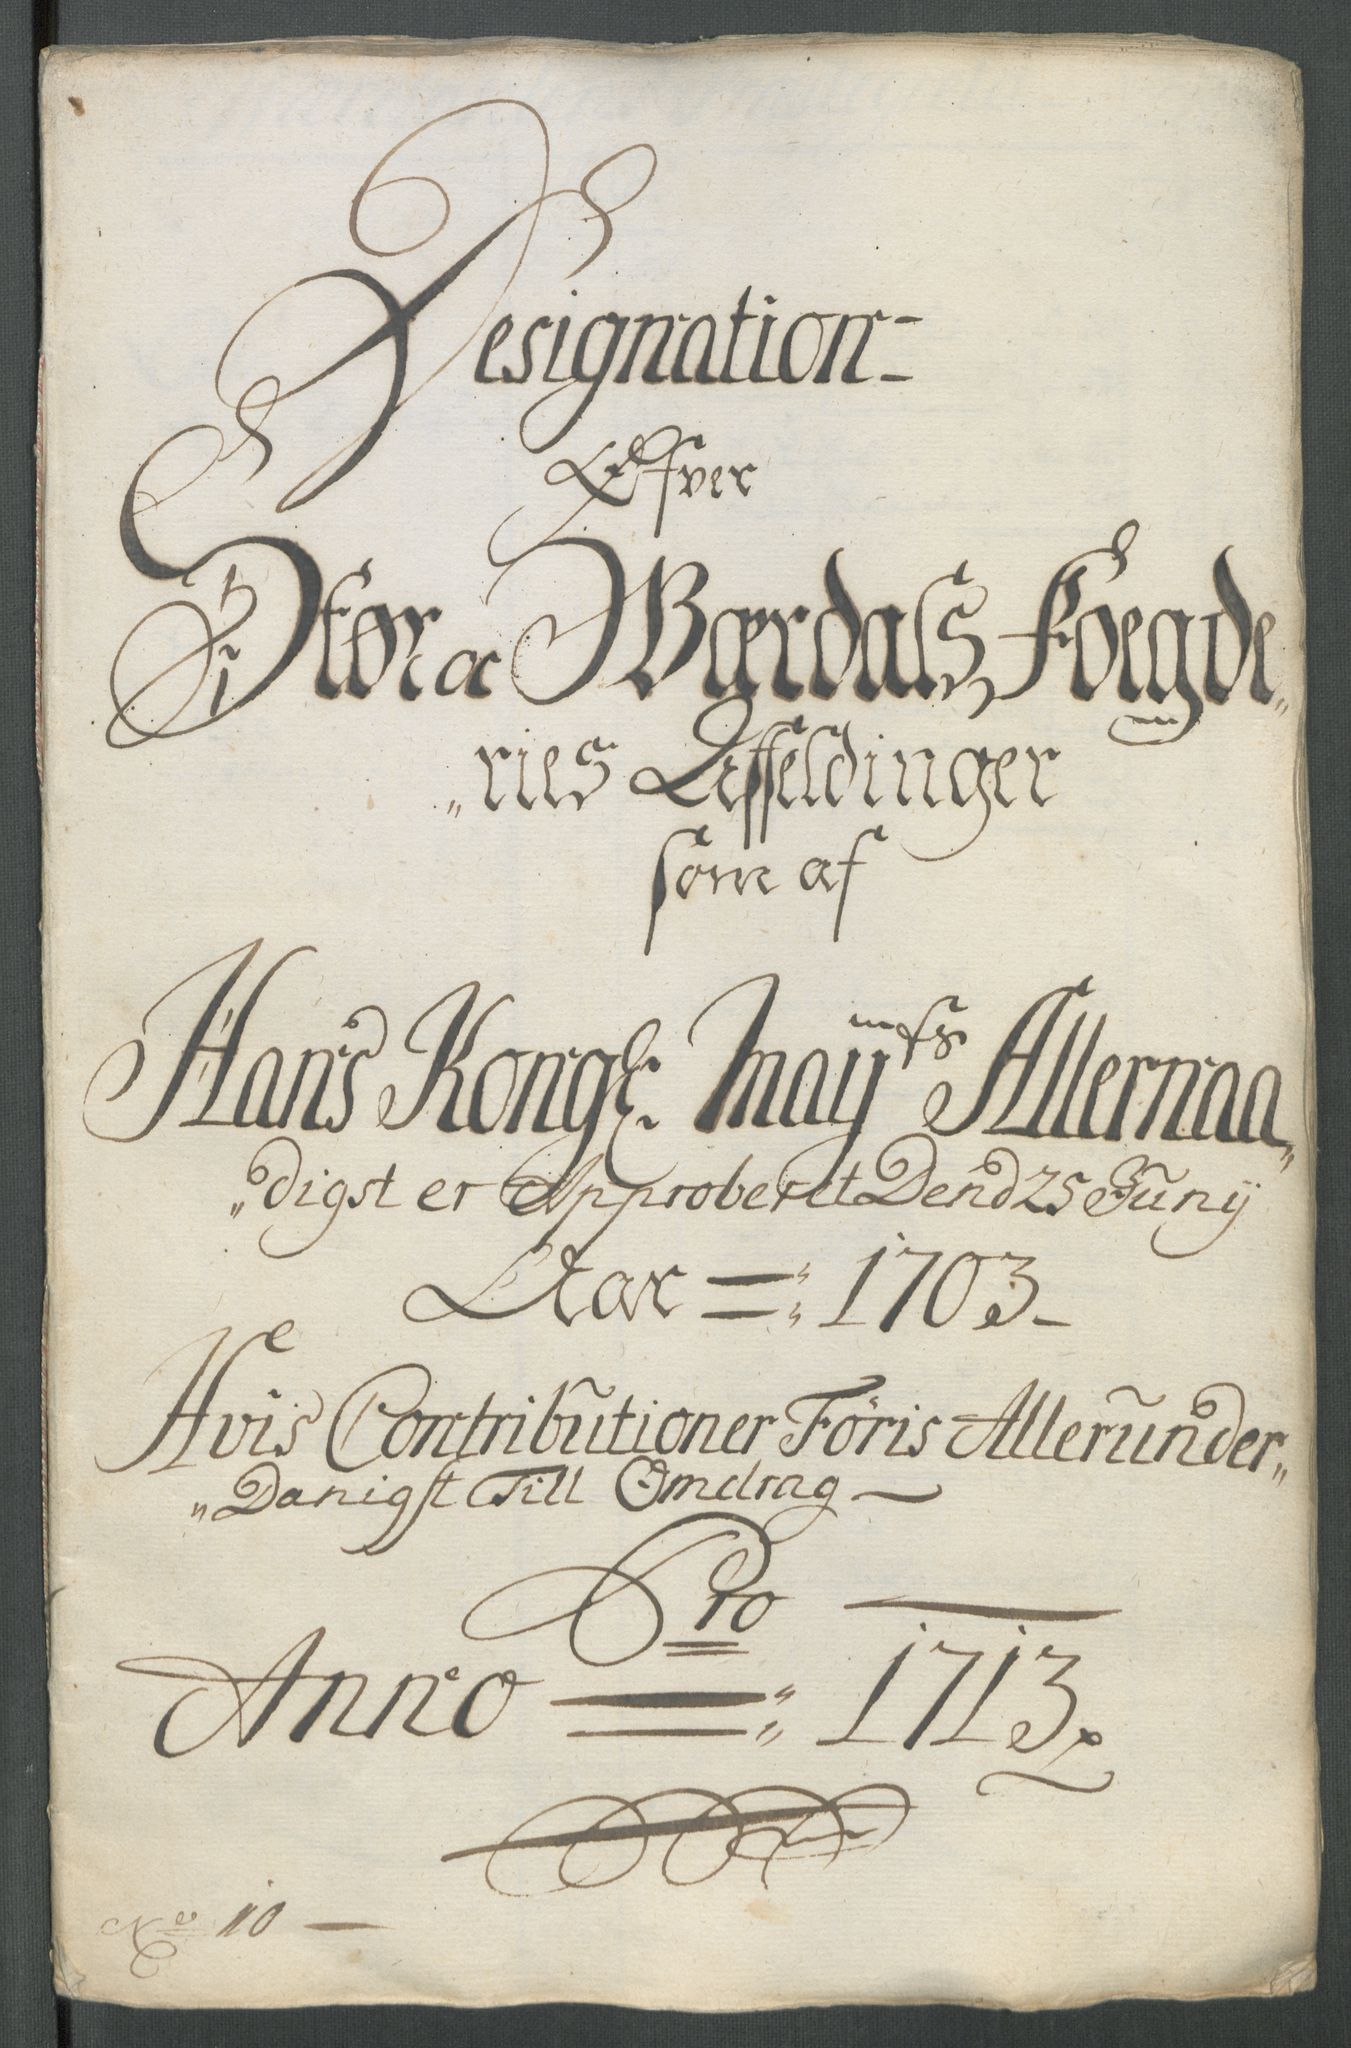 Designation-
Ofver
Stør oc Wærdals Foegde„
„ries Affeldinger
som af
Hans Kongl. Mayts Allernaa„
„digst er Approberet Dend 25 Juny
Aar =: 1703-
Hvis Contributioner Føris Allerunder„
„Danigst Till Omdrag —
Pro —
Anno =: 1713
No 10 —